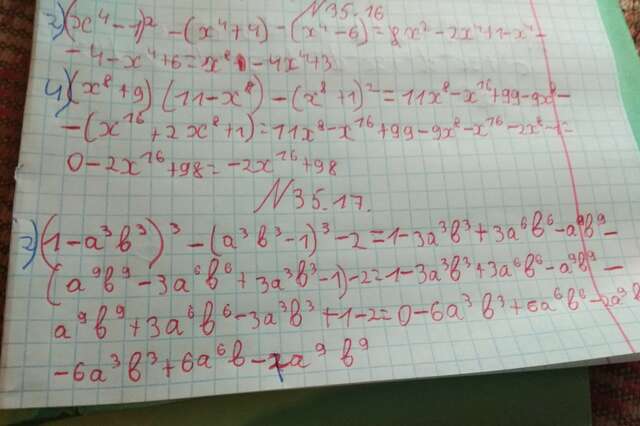 N 35.16
2) (x⁴-1)² - (x⁴+4) - (x⁴-6) = 8x² - 2x⁴+1-x⁴-
-4-x⁴+6= x⁸ -4x⁴+3
4) (x⁸+9) (11-x⁸) - (x⁸+1)² = 11x⁸-x¹⁶+99-9x⁸-
-(x¹⁶+2x⁸+1)=11x⁸-x¹⁶+99-9x⁸-x¹⁶-2x⁸-1=
0-2x¹⁶+98=-2x¹⁶+98
N 35.17.
2) (1-a³b³)³ - (a³b³-1)³-2=1-3a³b³+3a⁶b⁶-a⁹b⁹-
(a⁹b⁹-3a⁶b⁶+3a³b³-1)-2=1-3a³b³+3a⁶b⁶-a⁹b⁹-
a⁹b⁹+3a⁶b⁶-3a³b³+1-2=0-6a³b³+6a⁶b⁶-2a⁹b
-6a³b³+6a⁶b-2a⁹b⁹